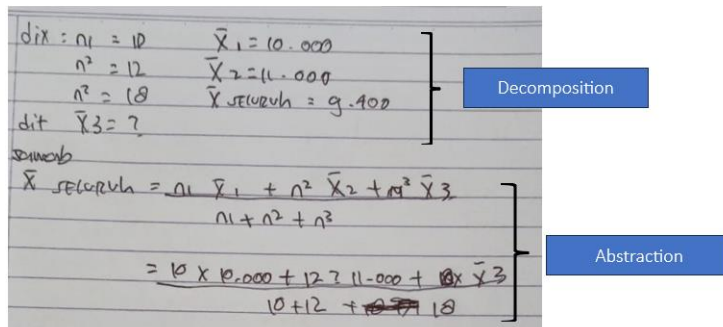 dix : n1 = 10 X̄1 = 10.000
n² = 12 X̄2 = 11.000
n² = 18 X̄ seluruh = 9.400
dit X̄3 = ?
Decomposition
Jawab
X̄ seluruh = n1 X̄1 + n² X̄2 + n³ X̄3
n1 + n² + n³
= 10 x 10.000 + 12 ? 11.000 + 18x X̄3
10 + 12 + 18
Abstraction